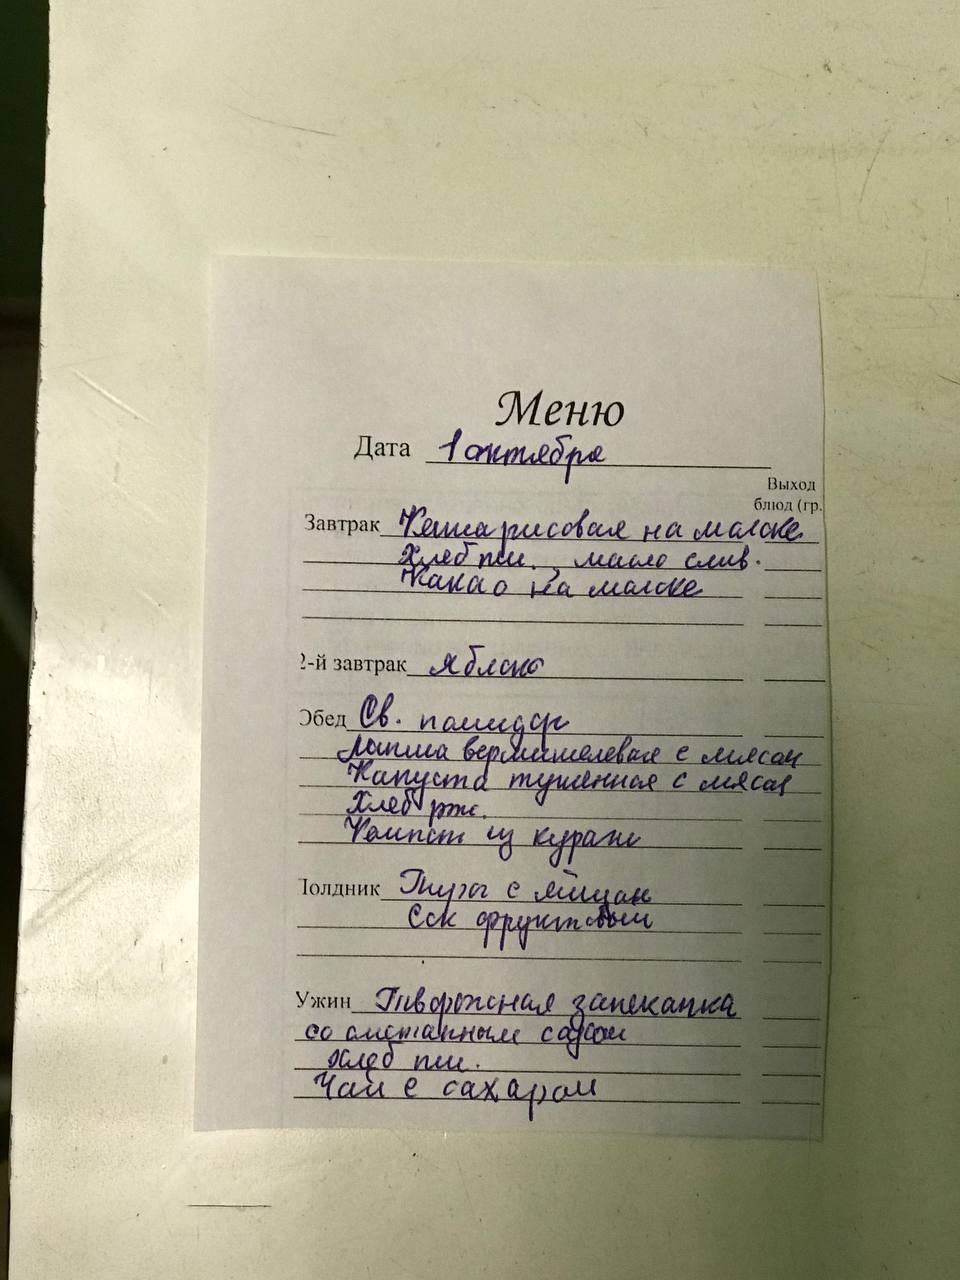 Меню
Дата 1 октября
Выход
блюд (гр.
Завтрак Каша рисовая на молоке
Хлеб пш. масло слив.
Какао на молоке
2-й завтрак Яблоко
Обед Св. помидор
Лапша вермишелевая с мясом
Капуста тушенная с мясом
Хлеб рж.
Компот из кураги
Полдник Пирог с яйцом
Сок фруктовый
Ужин Творожная запеканка
со сметанным соусом
Хлеб пш.
Чай с сахаром